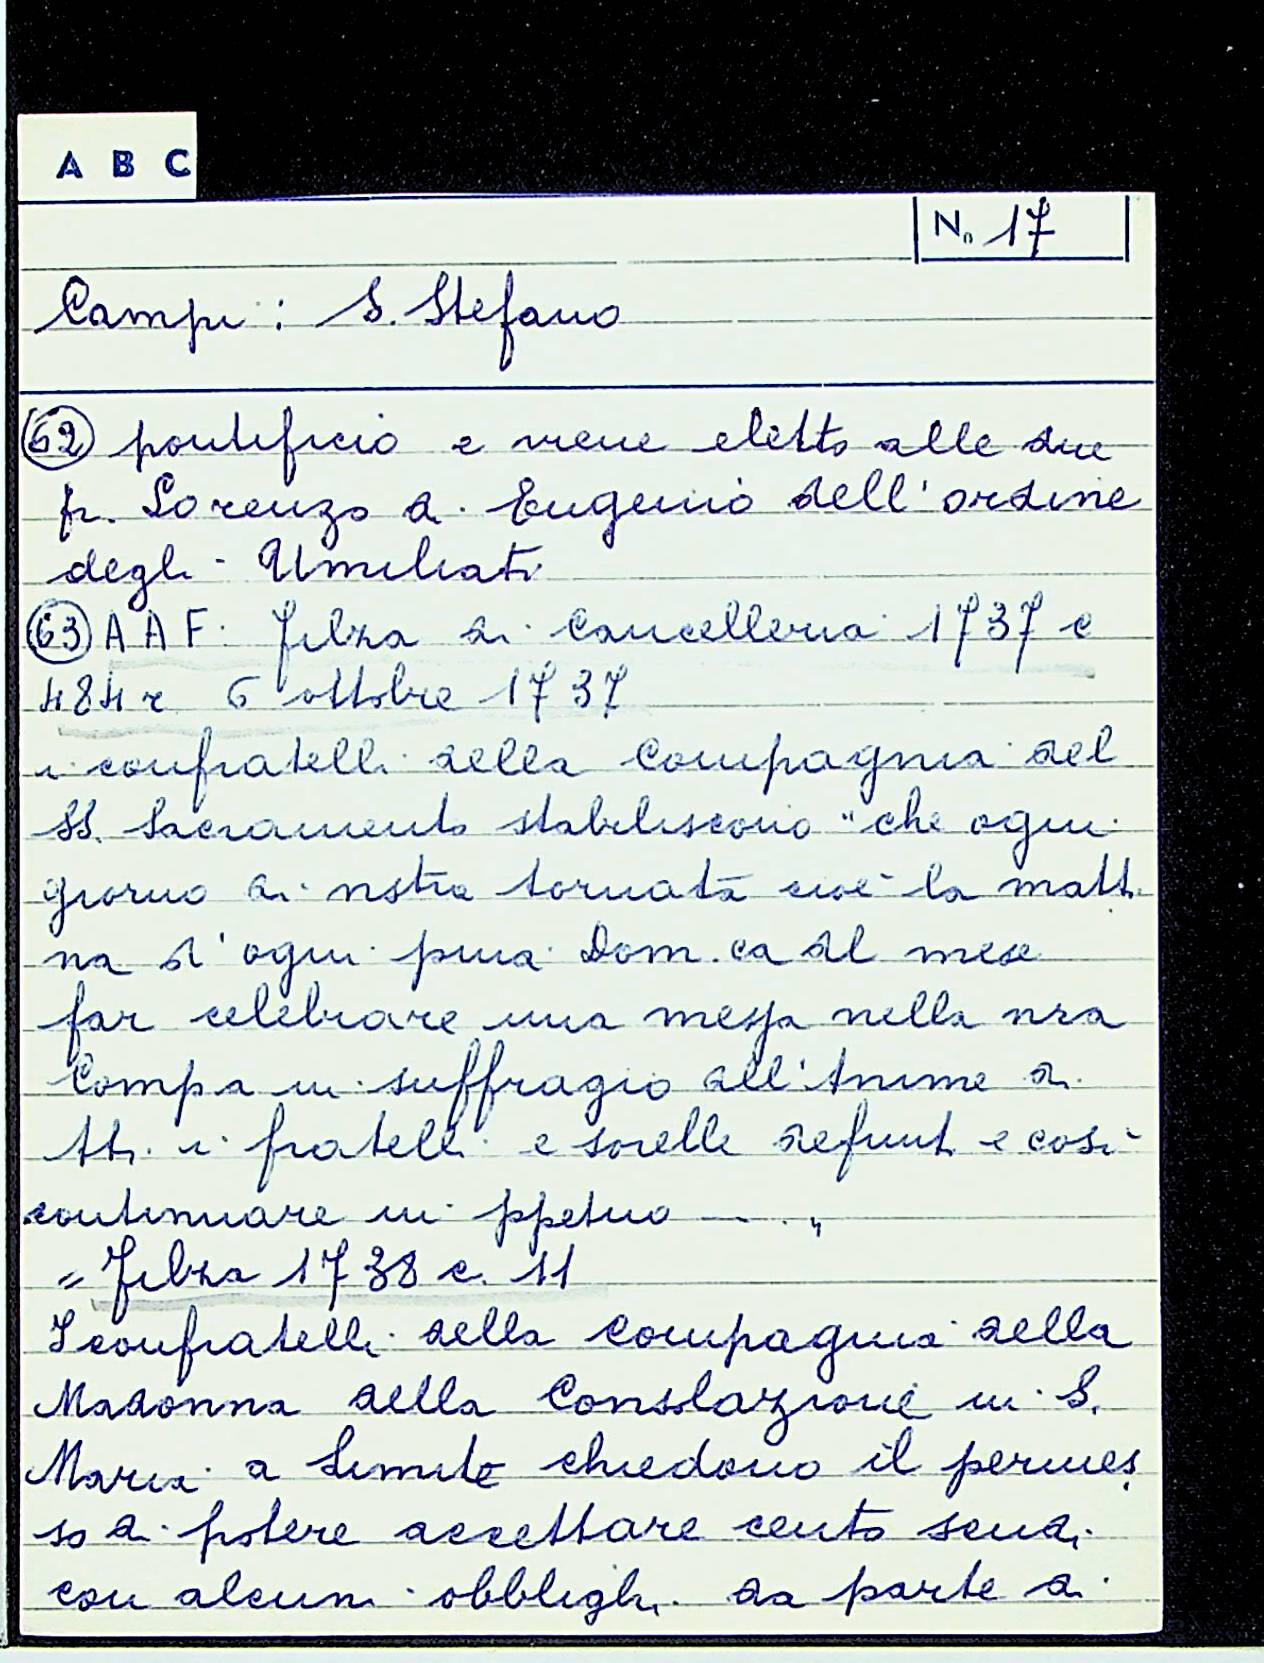 A B C
No 17
Campi: S. Stefano
62 pontificio e viene eletto alle due
fr. Lorenzo di Eugenio dell'ordine
degli Umiliati
63 A A F. Filza di Cancelleria 1737 c
484 r 6 ottobre 1737
i confratelli della Compagnia del
SS. Sacramento stabiliscono "che ogni
giorno di nstra tornata cioè la matti
na d'ogni pma Dom.ca dl mese
far celebrare una messa nella nra
Compa in suffragio all'Anime di
tti i fratelli e sorelle defunti e così
continuare in ppetuo - . . "
= Filza 1738 c. 11
I confratelli della compagnia della
Madonna della Consolazione in S.
Maria a Limite chiedono il permes
so di potere accettare cento scudi
con alcuni obblighi da parte di